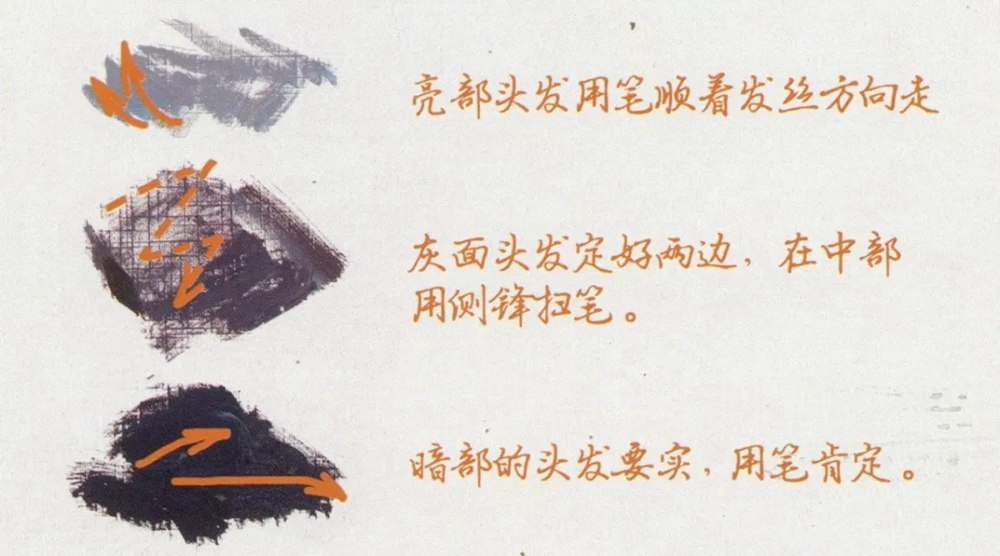 亮部头发用笔顺着发丝方向走
灰面头发定好两边，在中部
用侧锋扭笔。
暗部的头发要实，用笔肯定。